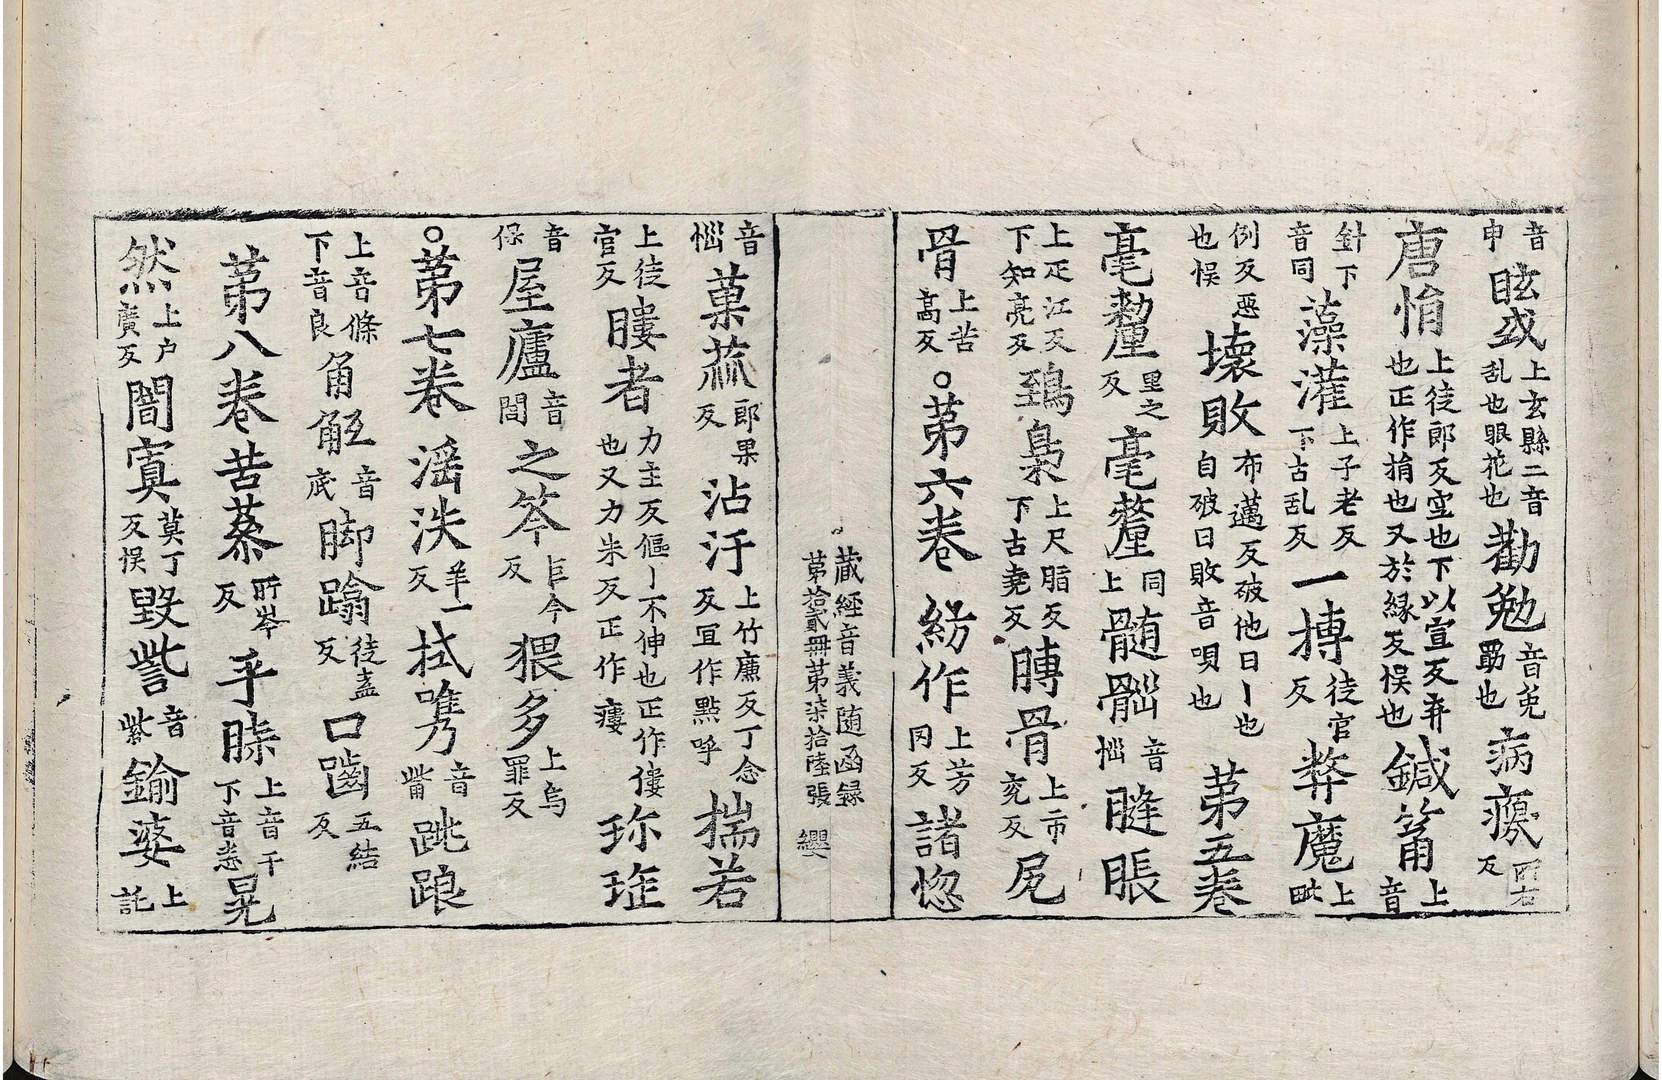 音申眩或上玄縣二音乱也眼花也勸勉音免勗也病瘶
唐悁上徒郎反空也下以宣反弃也正作捐也又於緣反悮也鍼筩上音
針下音同藻灌上子老反下古乱反一摶徒官反弊魔上毗
例反惡也悮壞敗布邁反破他曰丨也自破曰敗音唄也第五卷
毫𣯛里之反毫氂同上髓𦠊音惱膖脹
上疋江反下知亮反鵄梟上尺脂反下古堯反膞骨上市兖反尻
骨上苦高反○第六卷 紡作上芳罔反諸惚
藏經音義随函録
第拾貳冊第柒拾陸張 纓
音惱菓蓏郎果反沾汙上竹廉反丁念反冝作點呼揣若
上徒官反瞜者力主反傴丨不伸也正作僂也又力朱反正作瘻珎琟
音保屋廬音閭之笒巨今反猥多上烏罪反
○第七卷 滛泆羊一反拭嘴音觜跳踉
上音條下音良角觝音底脚蹹徒盍反口嚙五結反
第八卷苦蔘所岑反乎𦛗上音干下音悉晃
然上户廣反閻寘莫丁反悮毀訾音紫鍮婆上託